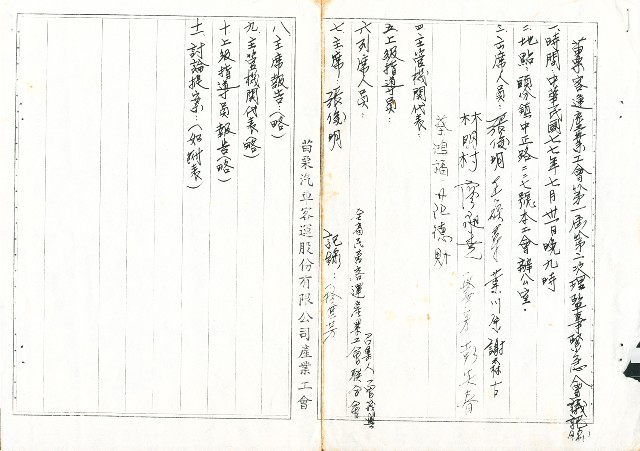 苗栗客運產業工會第一屆第二次理監事緊急會議記錄
一時間:中華民國七七年七月卅一日晚九時
二地點:頭份鎮中正路二二七號本工會辦公室.
三.出席人員:張俊明 葉川 謝森古
林明村
蔡鴻 德財
四主管機關代表:
五上級指導員:
全省民營客運產業工會聯合會
召集人 曾
六列席人員:
七主席:張俊明 記錄:
八主席報告(略)
九主管機關代表(略)
十上級指導員報告(略)
十一討論提案:(如附表)
苗栗汽車客運股份有限公司產業工會